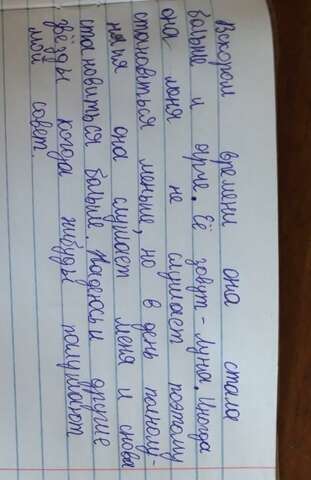 Вскором времени она стала
больше и ярче. Её зовут - Луна. Иногда
она моня не слушает поэтому
становиться меньше, но в день полнолу-
нья она слушает меня и снова
становиться больше. Надеюсь и другие
звёзды когда нибудь полумают
мой совет.